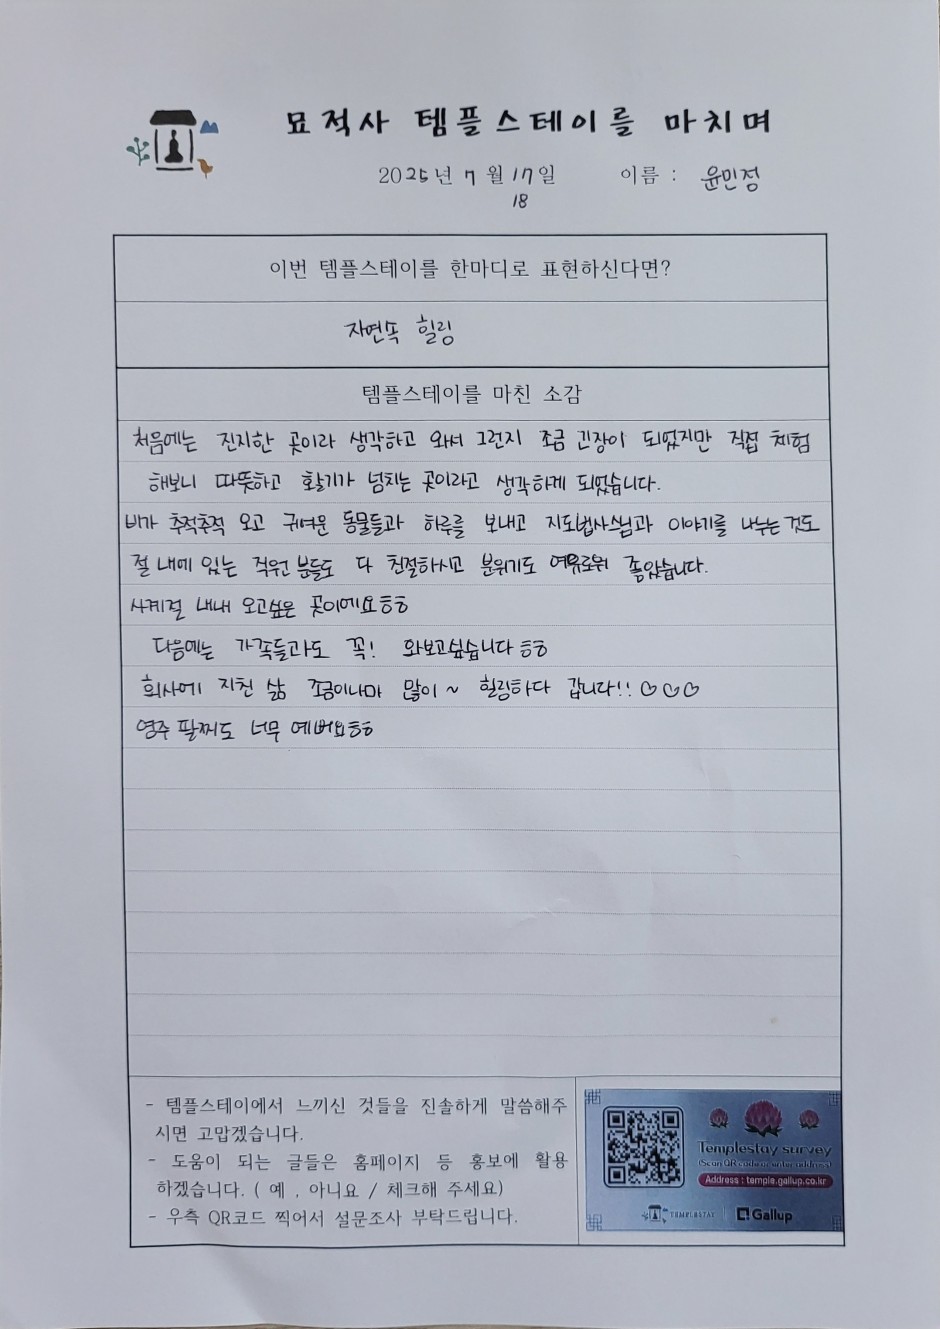 묘적사 템플스테이를 마치며
2025년 7월 17일 이름 : 윤민정
18
이번 템플스테이를 한마디로 표현하신다면?
자연속 힐링
템플스테이를 마친 소감
처음에는 진지한 곳이라 생각하고 와서 그런지 조금 긴장이 되었지만 직접 체험
해보니 따뜻하고 활기가 넘치는 곳이라고 생각하게 되었습니다.
비가 추적추적 오고 귀여운 동물들과 하루를 보내고 지도법사스님과 이야기를 나누는것도
절 내에 있는 직원분들도 다 친절하시고 분위기도 여유로워 좋았습니다.
사계절 내내 오고싶은 곳이에요ㅎㅎ
다음에는 가족들과도 꼭! 와보고싶습니다ㅎㅎ
회사에 지친 삶 조금이나마 많이~ 힐링하다 갑니다!! ♡♡♡
염주 팔찌도 너무 예뻐요ㅎㅎ
- 템플스테이에서 느끼신 것들을 진솔하게 말씀해주
시면 고맙겠습니다.
- 도움이 되는 글들은 홈페이지 등 홍보에 활용
하겠습니다. ( 예 , 아니요 / 체크해 주세요)
- 우측 QR코드 찍어서 설문조사 부탁드립니다.
Templestay survey
(Scan QR code or enter address)
Address : temple.gallup.co.kr
TEMPLESTAY
Gallup